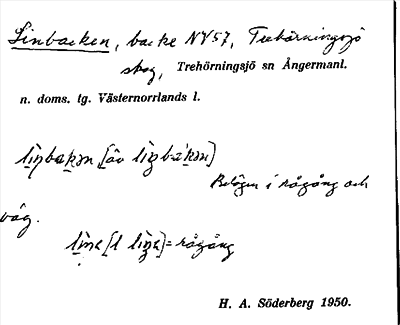 Linbacken, backe NV57, Trehörningsjö
skog, Trehörningsjö sn Ångermanl.
n. doms. tg. Västernorrlands l.
Belägen i rågång och
väg.
= rågång
H. A. Söderberg 1950.